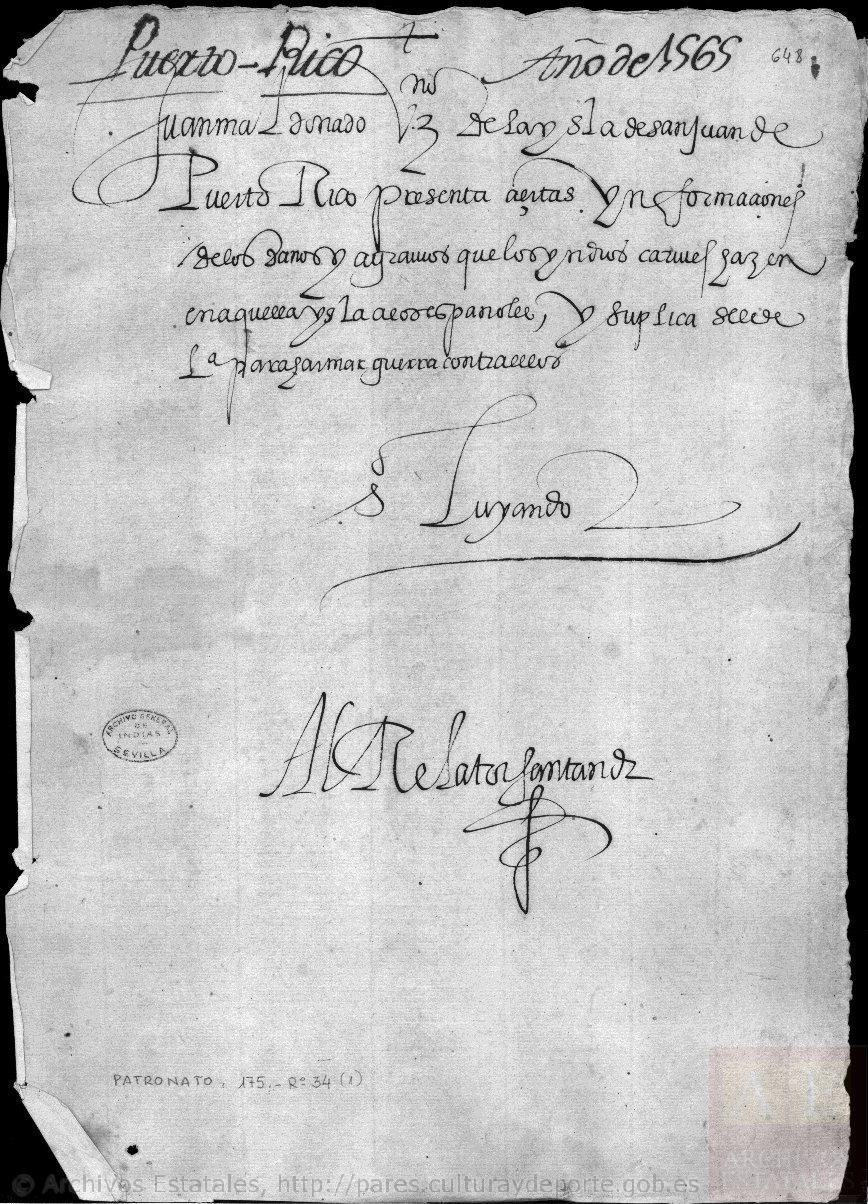 Puerto-Rico
Año de 1565
648
Juan maldonado vz no de la ysla de san Juan de
Puerto Rico presenta çiertas ynformaçiones
de los daños y agravios que los yndios carives hazen
en aquella ysla a los españoles, y suplica se le de
lça para harmar guerra contra ellos
s Luyando
Al Relator santandr
ARCHIVO GENERAL
DE
INDIAS
SEVILLA
PATRONATO, 175,- Rº 34 (1)
© Archivos Estatales, http://pares.culturaydeporte.gob.es